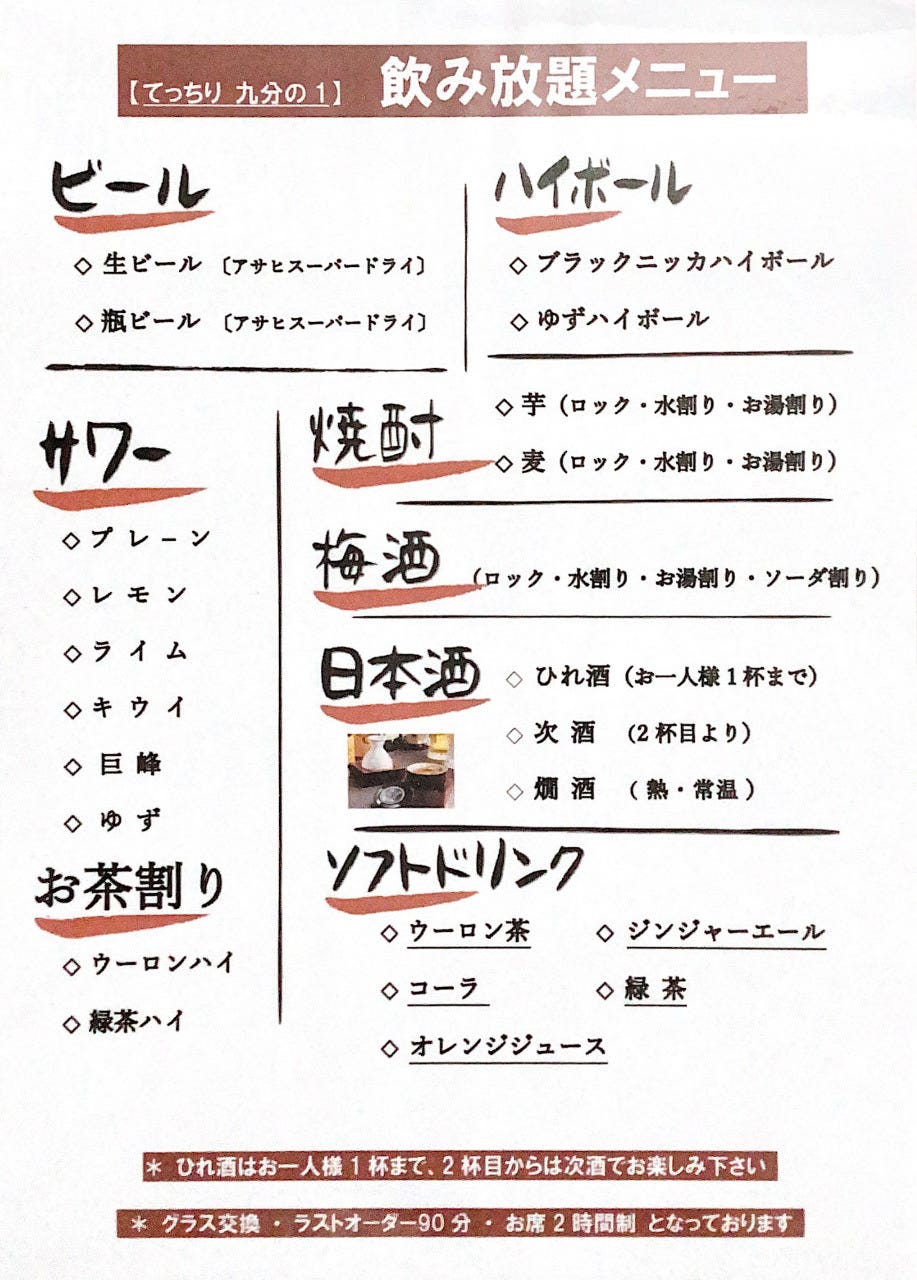 【てっちり 九分の1】 飲み放題メニュー
ビール
◇ 生ビール 〔アサヒスーパードライ〕
◇ 瓶ビール 〔アサヒスーパードライ〕
ハイボール
◇ ブラックニッカハイボール
◇ ゆずハイボール
サワー
◇ プレーン
◇ レモン
◇ ライム
◇ キウイ
◇ 巨峰
◇ ゆず
お茶割り
◇ ウーロンハイ
◇ 緑茶ハイ
焼酎
◇ 芋（ロック・水割り・お湯割り）
◇ 麦（ロック・水割り・お湯割り）
梅酒 （ロック・水割り・お湯割り・ソーダ割り）
日本酒
◇ ひれ酒（お一人様1杯まで）
◇ 次酒 （2杯目より）
◇ 燗酒 （熱・常温）
ソフトドリンク
◇ ウーロン茶 ◇ ジンジャーエール
◇ コーラ ◇ 緑茶
◇ オレンジジュース
＊ ひれ酒はお一人様1杯まで、2杯目からは次酒でお楽しみ下さい
＊ グラス交換 ・ ラストオーダー90分 ・ お席2時間制 となっております